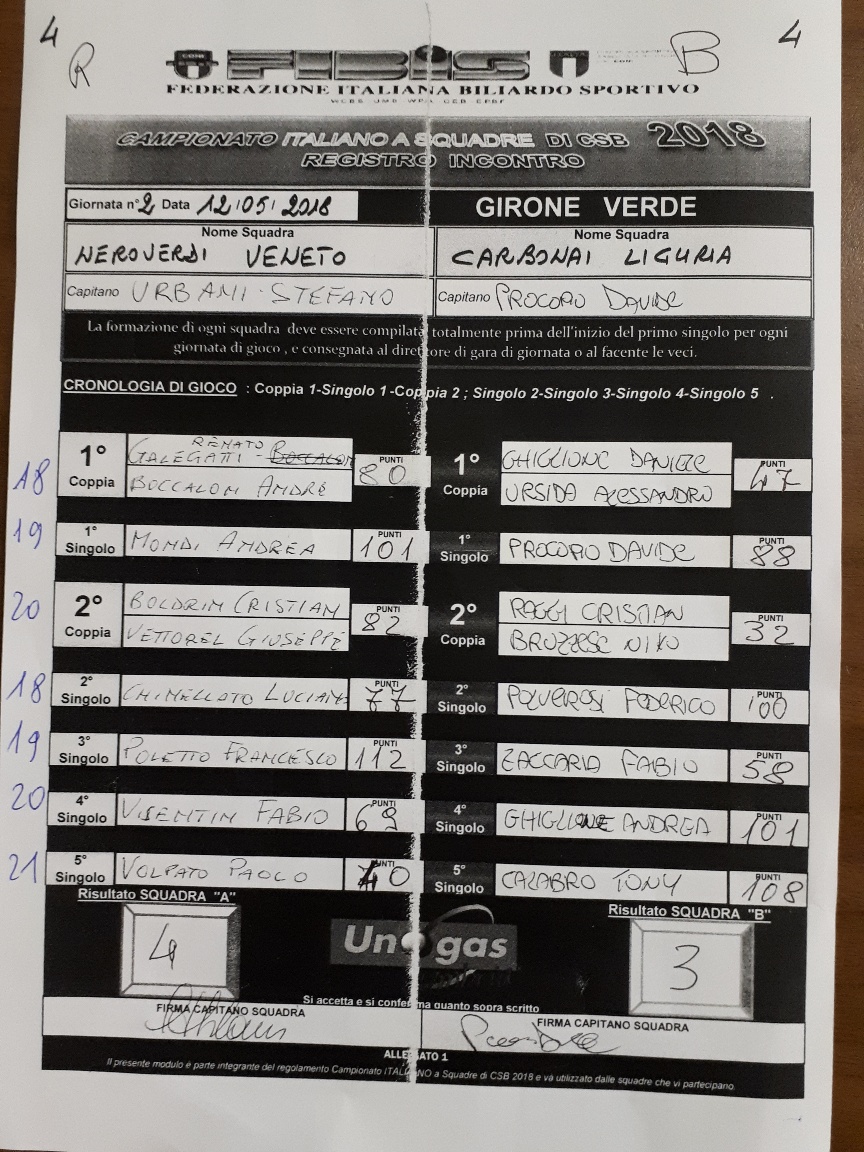 4 4
R B
FIBIS
FEDERAZIONE ITALIANA BILIARDO SPORTIVO
CAMPIONATO ITALIANO A SQUADRE DI CSB 2018
REGISTRO INCONTRO
Giornata n° 2 Data 12/05/2018 GIRONE VERDE
Nome Squadra Nome Squadra
NEROVERDI VENETO CARBONAI LIGURIA
Capitano URBANI STEFANO Capitano PROCOPIO DAVIDE
La formazione di ogni squadra deve essere compilata totalmente prima dell'inizio del primo singolo per ogni
giornata di gioco , e consegnata al direttore di gara di giornata o al facente le veci.
CRONOLOGIA DI GIOCO : Coppia 1-Singolo 1 -Coppia 2 ; Singolo 2-Singolo 3-Singolo 4-Singolo 5 .
RENATO
18 1° Coppia GALEGATTI - PUNTI 80 1° Coppia GHIGLIONE DANIELE PUNTI 47
BOCCALON ANDRE URSIDA ALESSANDRO
19 1° Singolo MONDI ANDREA PUNTI 101 1° Singolo PROCOPIO DAVIDE PUNTI 88
20 2° Coppia BOLDRIN CRISTIAN PUNTI 82 2° Coppia RAGGI CRISTIAN PUNTI 32
VETTOREL GIUSEPPE BRUZZESE NIKO
18 2° Singolo CHINELLATO LUCIAN PUNTI 77 2° Singolo POLVEROSI FEDERICO PUNTI 100
19 3° Singolo POLETTO FRANCESCO PUNTI 112 3° Singolo ZACCARIA FABIO PUNTI 58
20 4° Singolo VISENTIN FABIO PUNTI 69 4° Singolo GHIGLIONE ANDREA PUNTI 101
21 5° Singolo VOLPATO PAOLO PUNTI 40 5° Singolo CALABRO TONY PUNTI 108
Risultato SQUADRA "A" Risultato SQUADRA "B"
4 Unogas 3
Si accetta e si conferma quanto sopra scritto
FIRMA CAPITANO SQUADRA FIRMA CAPITANO SQUADRA
ALLEGATO 1
Il presente modulo è parte integrante del regolamento Campionato ITALIANO a Squadre di CSB 2018 e và utilizzato dalle squadre che vi partecipano.